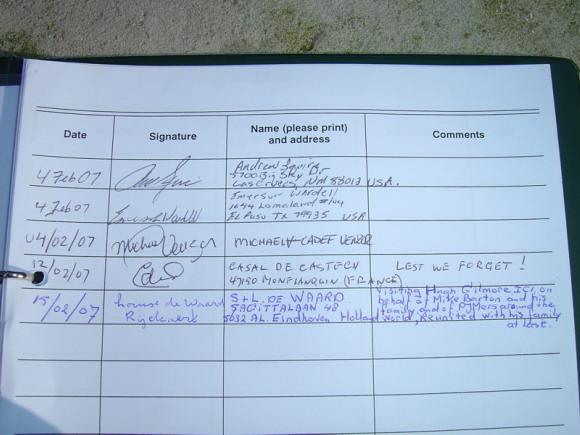 Date Signature Name (please print) and address Comments
4 Feb 07 Andrew
5700 Big Sky Dr.
Las Cruces, NM 88012 USA.
4 Feb 07 Emerson Wardell
1044 Lomaland #104
El Paso TX 79935 USA
04/02/07 MICHAEL CADET VENZOR
12/02/07 CASAL DE CASTECH LEST WE FORGET!
47150 MONFLANQUIN (FRANCE)
15/02/07 Louise de Waard S+L. DE WAARD Visiting Hugh Gilmore ICI, on
behalf of Mike Barton and his
Rijckmerk SAGITTALAAN 48 family, and of PJMers around the
5632 AL. Eindhoven Holland World, Reunited with his family
at last.